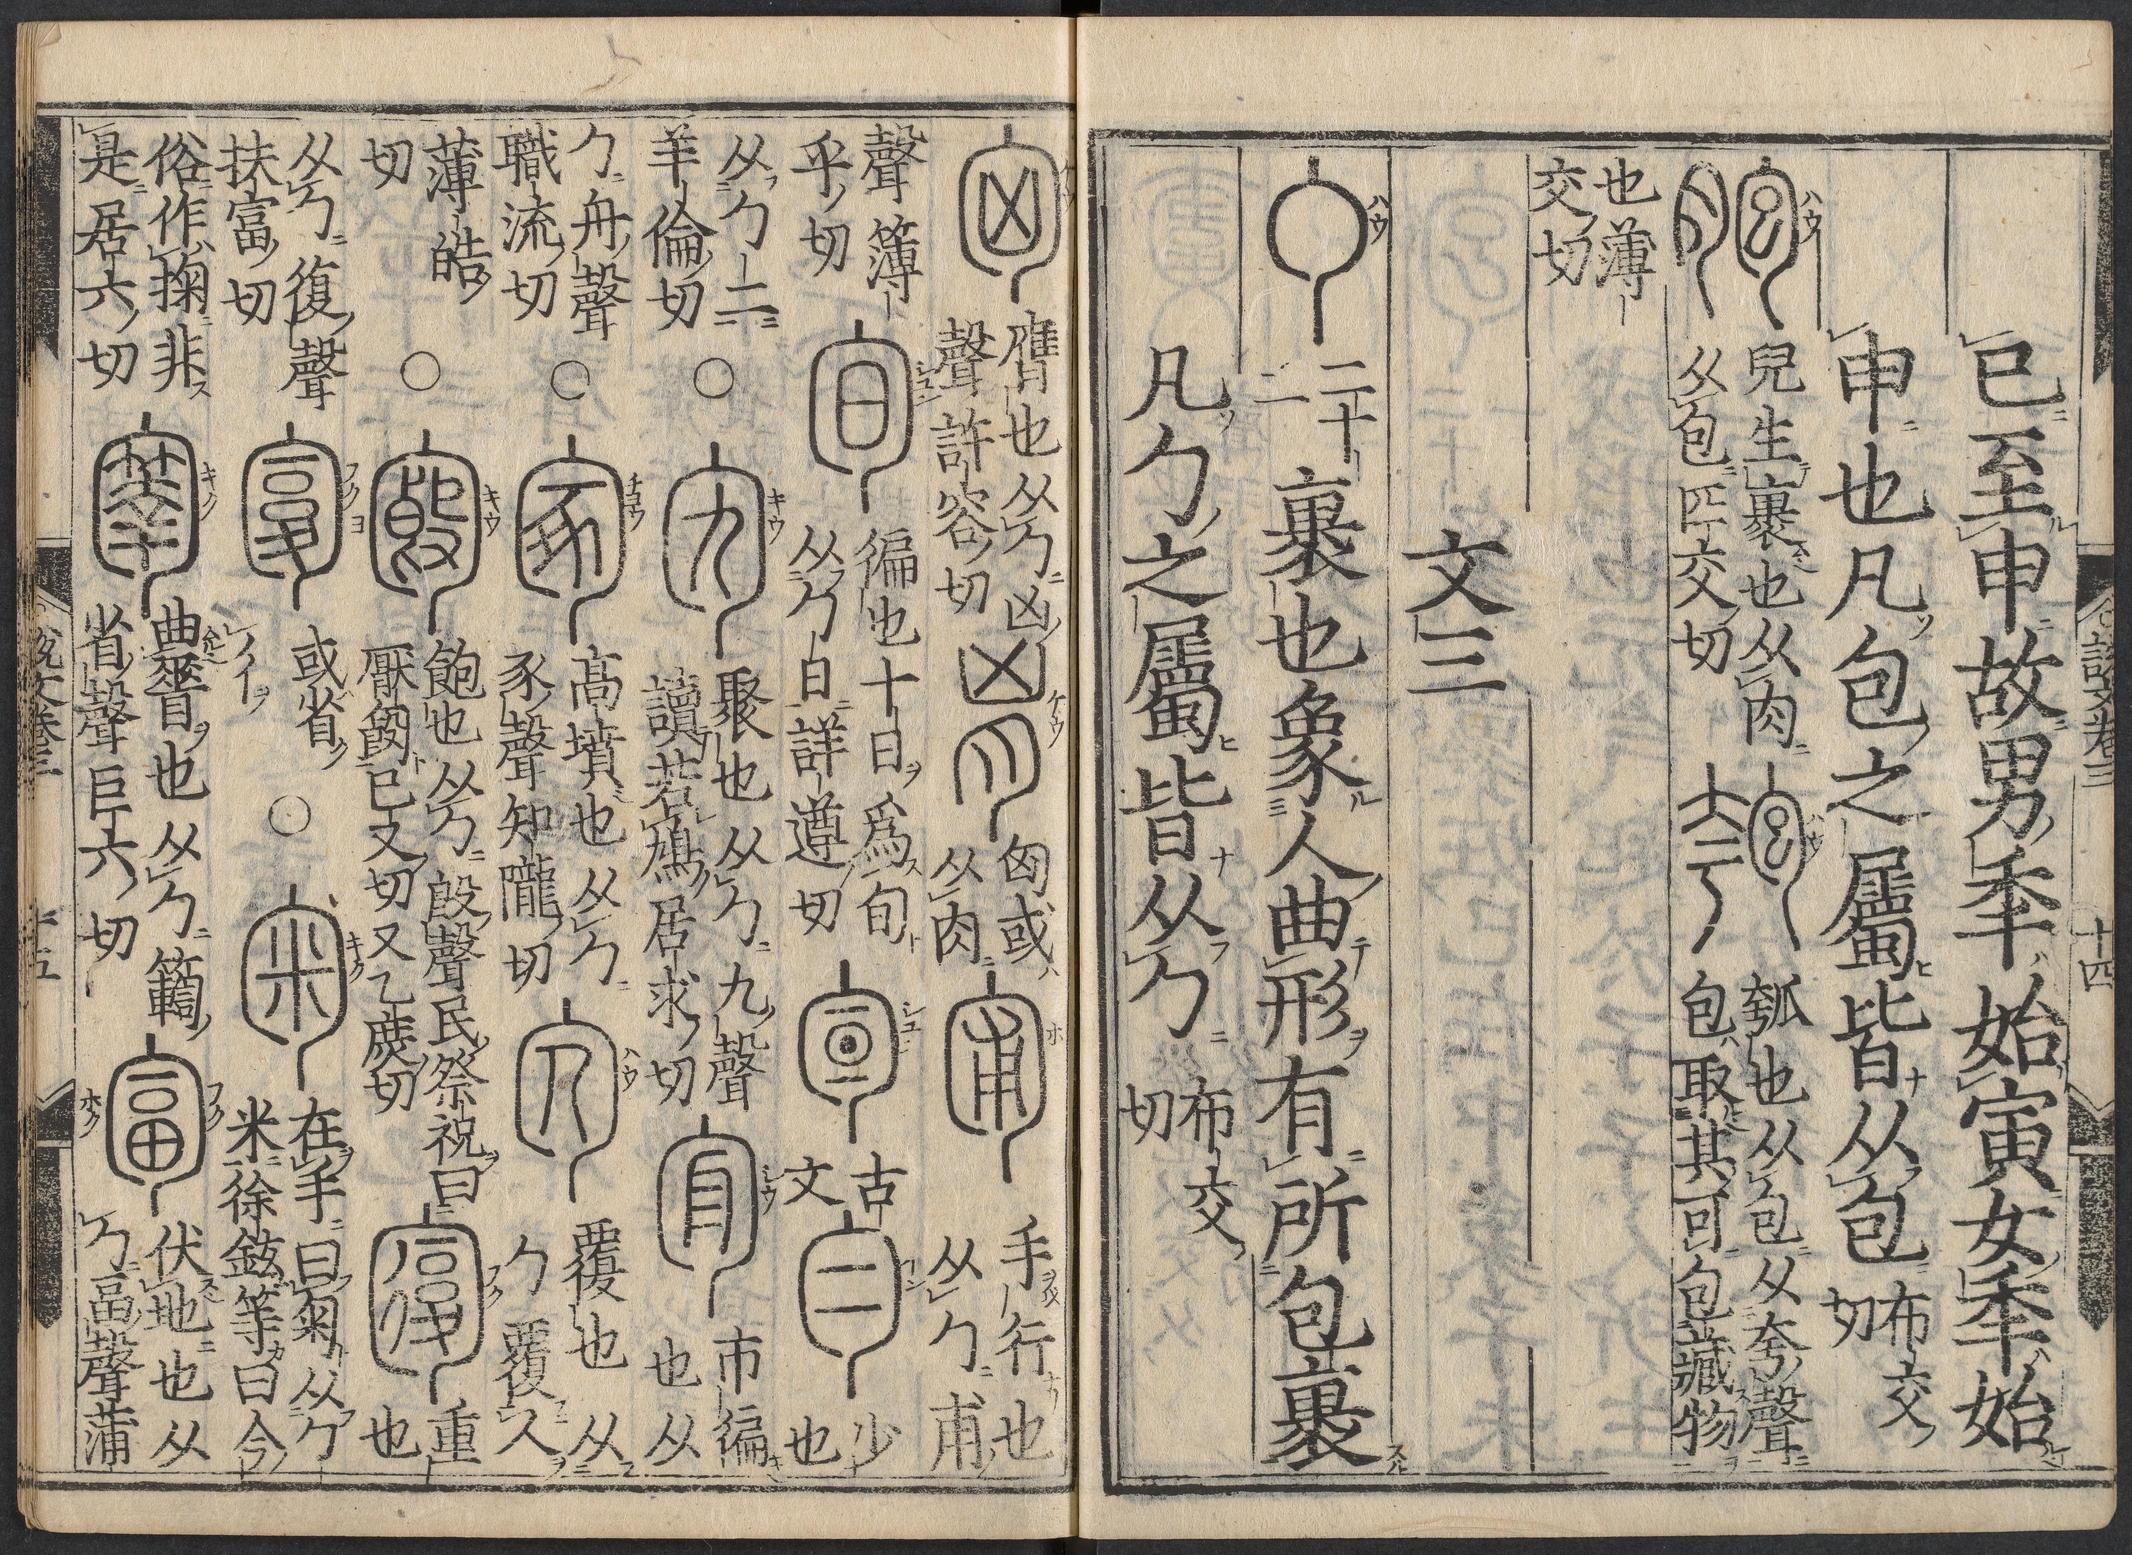 已至申故男秊始寅女秊始
申也凡包之屬皆从包布交切
胞兒生裹也从肉从包匹交切匏瓠也从包从夸聲包取其可包藏物
也薄交切
文三
勹二十二裹也象人曲形有所包裹
凡勹之屬皆从勹布交切
說文卷三 十四
匈膺也从勹凶聲許容切胷匈或从肉匍手行也从勹甫
聲簿乎切旬徧也十日爲旬从勹日詳遵切古文勻少也
从勹二羊倫切○勼聚也从勹九聲讀若鳩居求切市徧也从
勹舟聲職流切○冢高墳也从勹豕聲知隴切覆也从勹覆人
薄皓切○飽也从勹聲民祭祝曰厭已又切又乙庶切重也
从勹復聲扶富切或省彳○匊在手曰匊从勹米徐鉉等曰今
俗作掬非是居六切曲脊也从勹省聲巨六切匐伏地也从勹畐聲蒲
說文卷三 十五